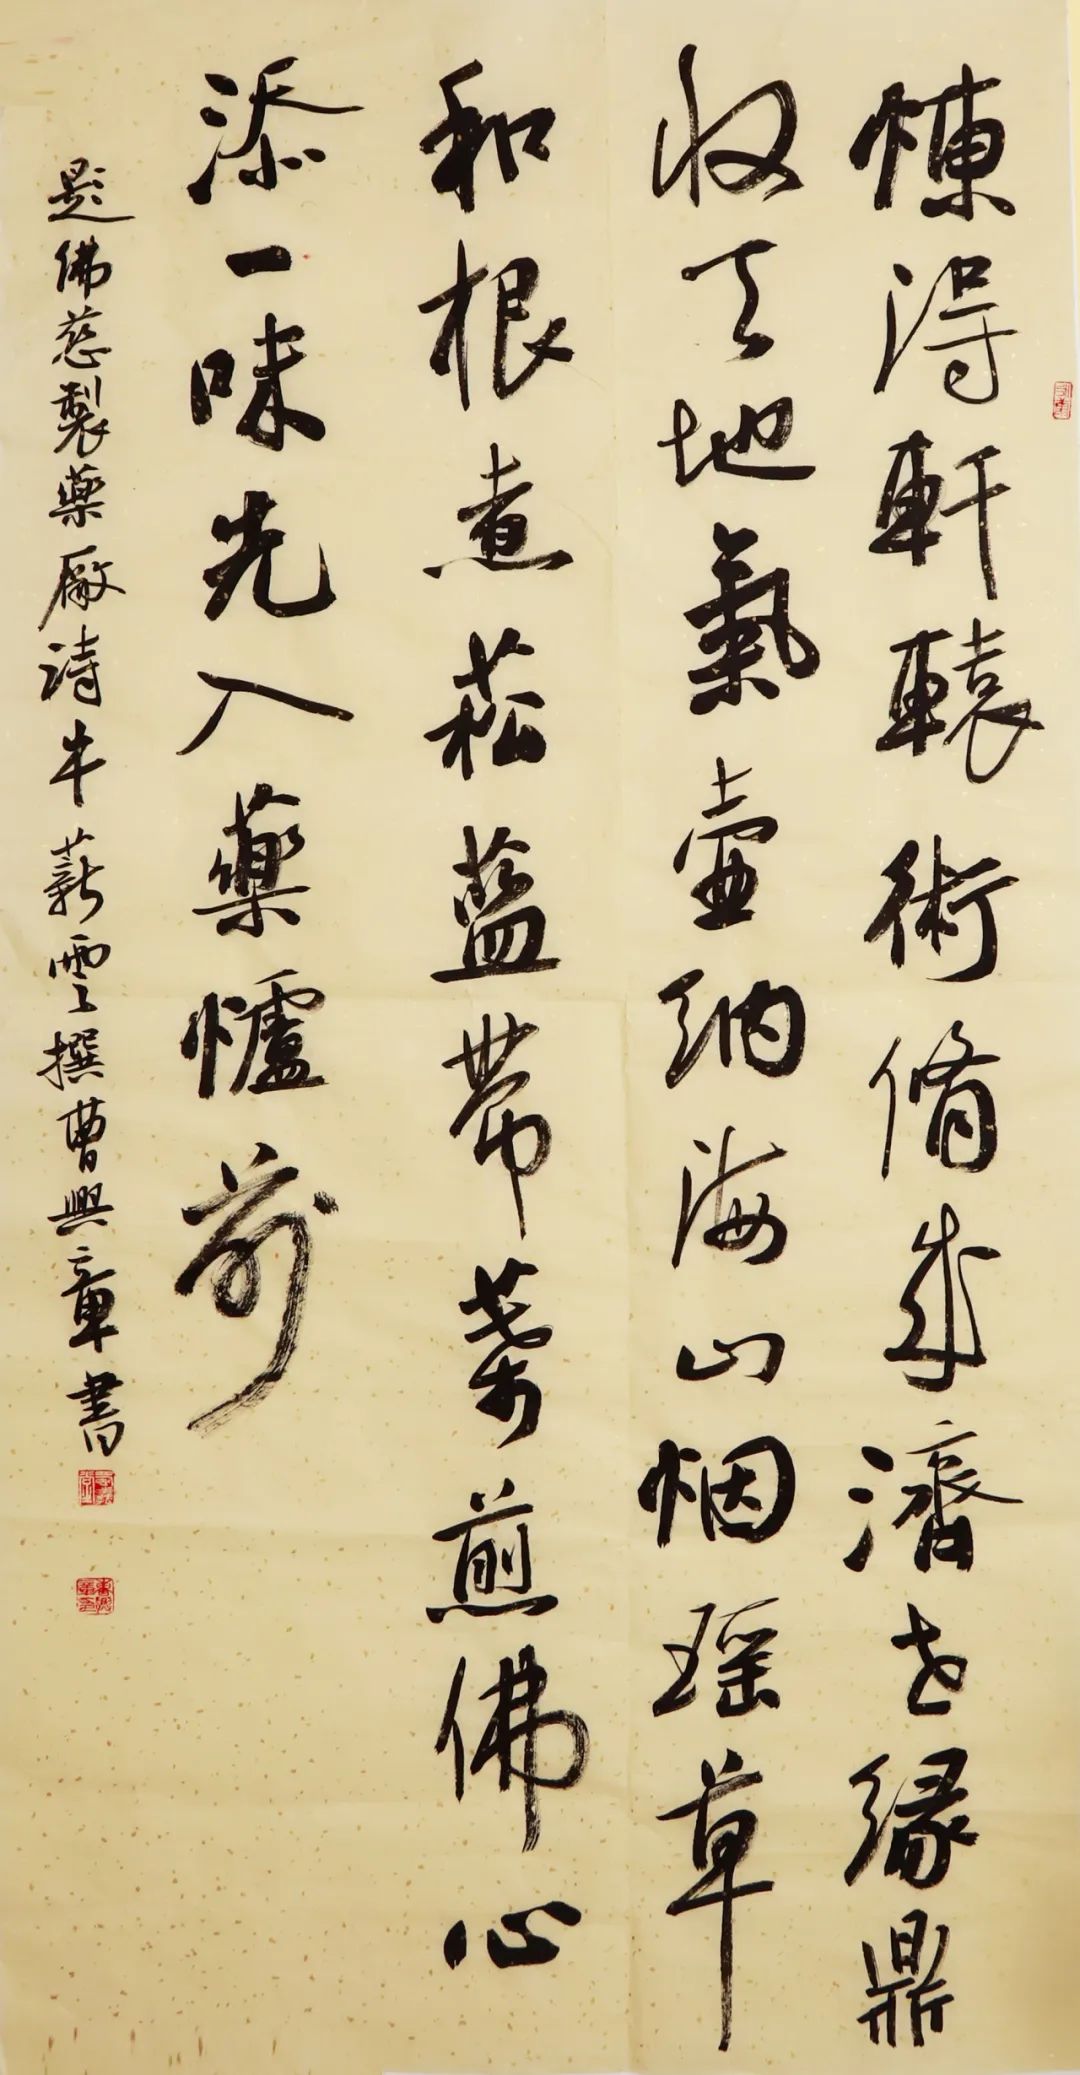 煉得軒轅術脩成濟世緣鼎
收天地氣壺納海山烟瑶草
和根煮菘藍帶葉煎佛心
添一味先入藥爐前
題佛慈製藥廠詩牛薪雲撰曹興章書